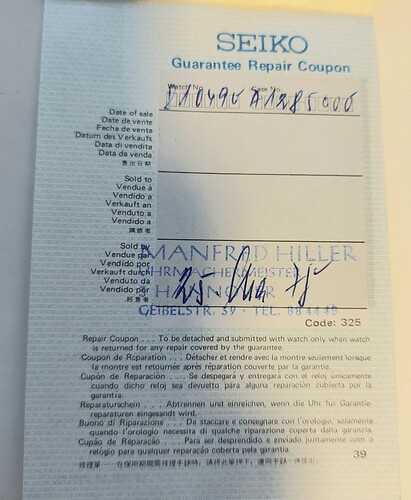 SEIKO
Guarantee Repair Coupon
Watch No. Case No.
Date of sale
Date de vente
Fecha de venta
Datum des Verkaufs
Data di vendita
Data da venda
售出日期
Sold to
Vendue à
Vendido a
Verkauft an
Venduto a
Vendido a
購錶者
Sold by
Vendue par
Vendido por
Verkauft durch
Venduto da
Vendido por
經售者
MANFRED HILLER
UHRMACHERMEISTER
HANNOVER
GEIBELSTR. 39 · TEL. 884448
25
Code: 325
Repair Coupon . . . To be detached and submitted with watch only when watch
is returned for any repair covered by the guarantee.
Coupon de Réparation . . . Détacher et rendre avec la montre seulement lorsque
la montre est retournée après réparation couverte par la garantie.
Cupón de Reparación . . . Se despegará y entregará con el reloj únicamente
cuando dicho reloj sea devuelto para alguna reparación cobierta por la
garantía.
Reparaturschein . . . Abtrennen und einreichen, wenn die Uhr für Garantie-
reparaturen eingesandt wird.
Buono di Riparazione . . . Da staccare e consegnare con l'orologio, solamente
quando l'orologio necessita di qualche riparazione coperta dalla garanzia.
Cupão de Reparação . . . Para ser desprendido e enviado juntamente com o
relógio para qualquer reparação coberta pela garantia.
39